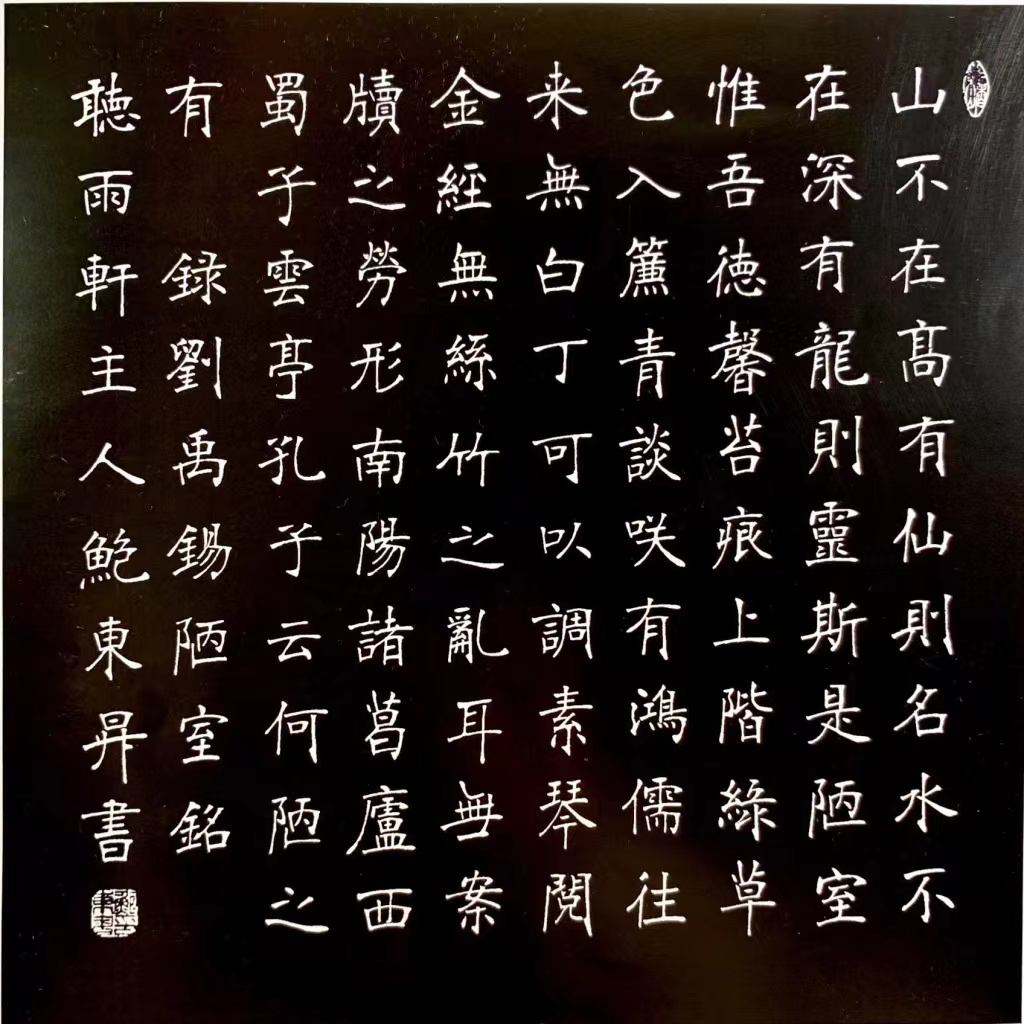 山不在高有仙則名水不
在深有龍則靈斯是陋室
惟吾德馨苔痕上階綠草
色入簾青談咲有鴻儒往
来無白丁可以調素琴閱
金經無絲竹之亂耳無案
牘之勞形南陽諸葛廬西
蜀子雲亭孔子云何陋之
有 録劉禹錫陋室銘
聽雨軒主人鮑東昇書